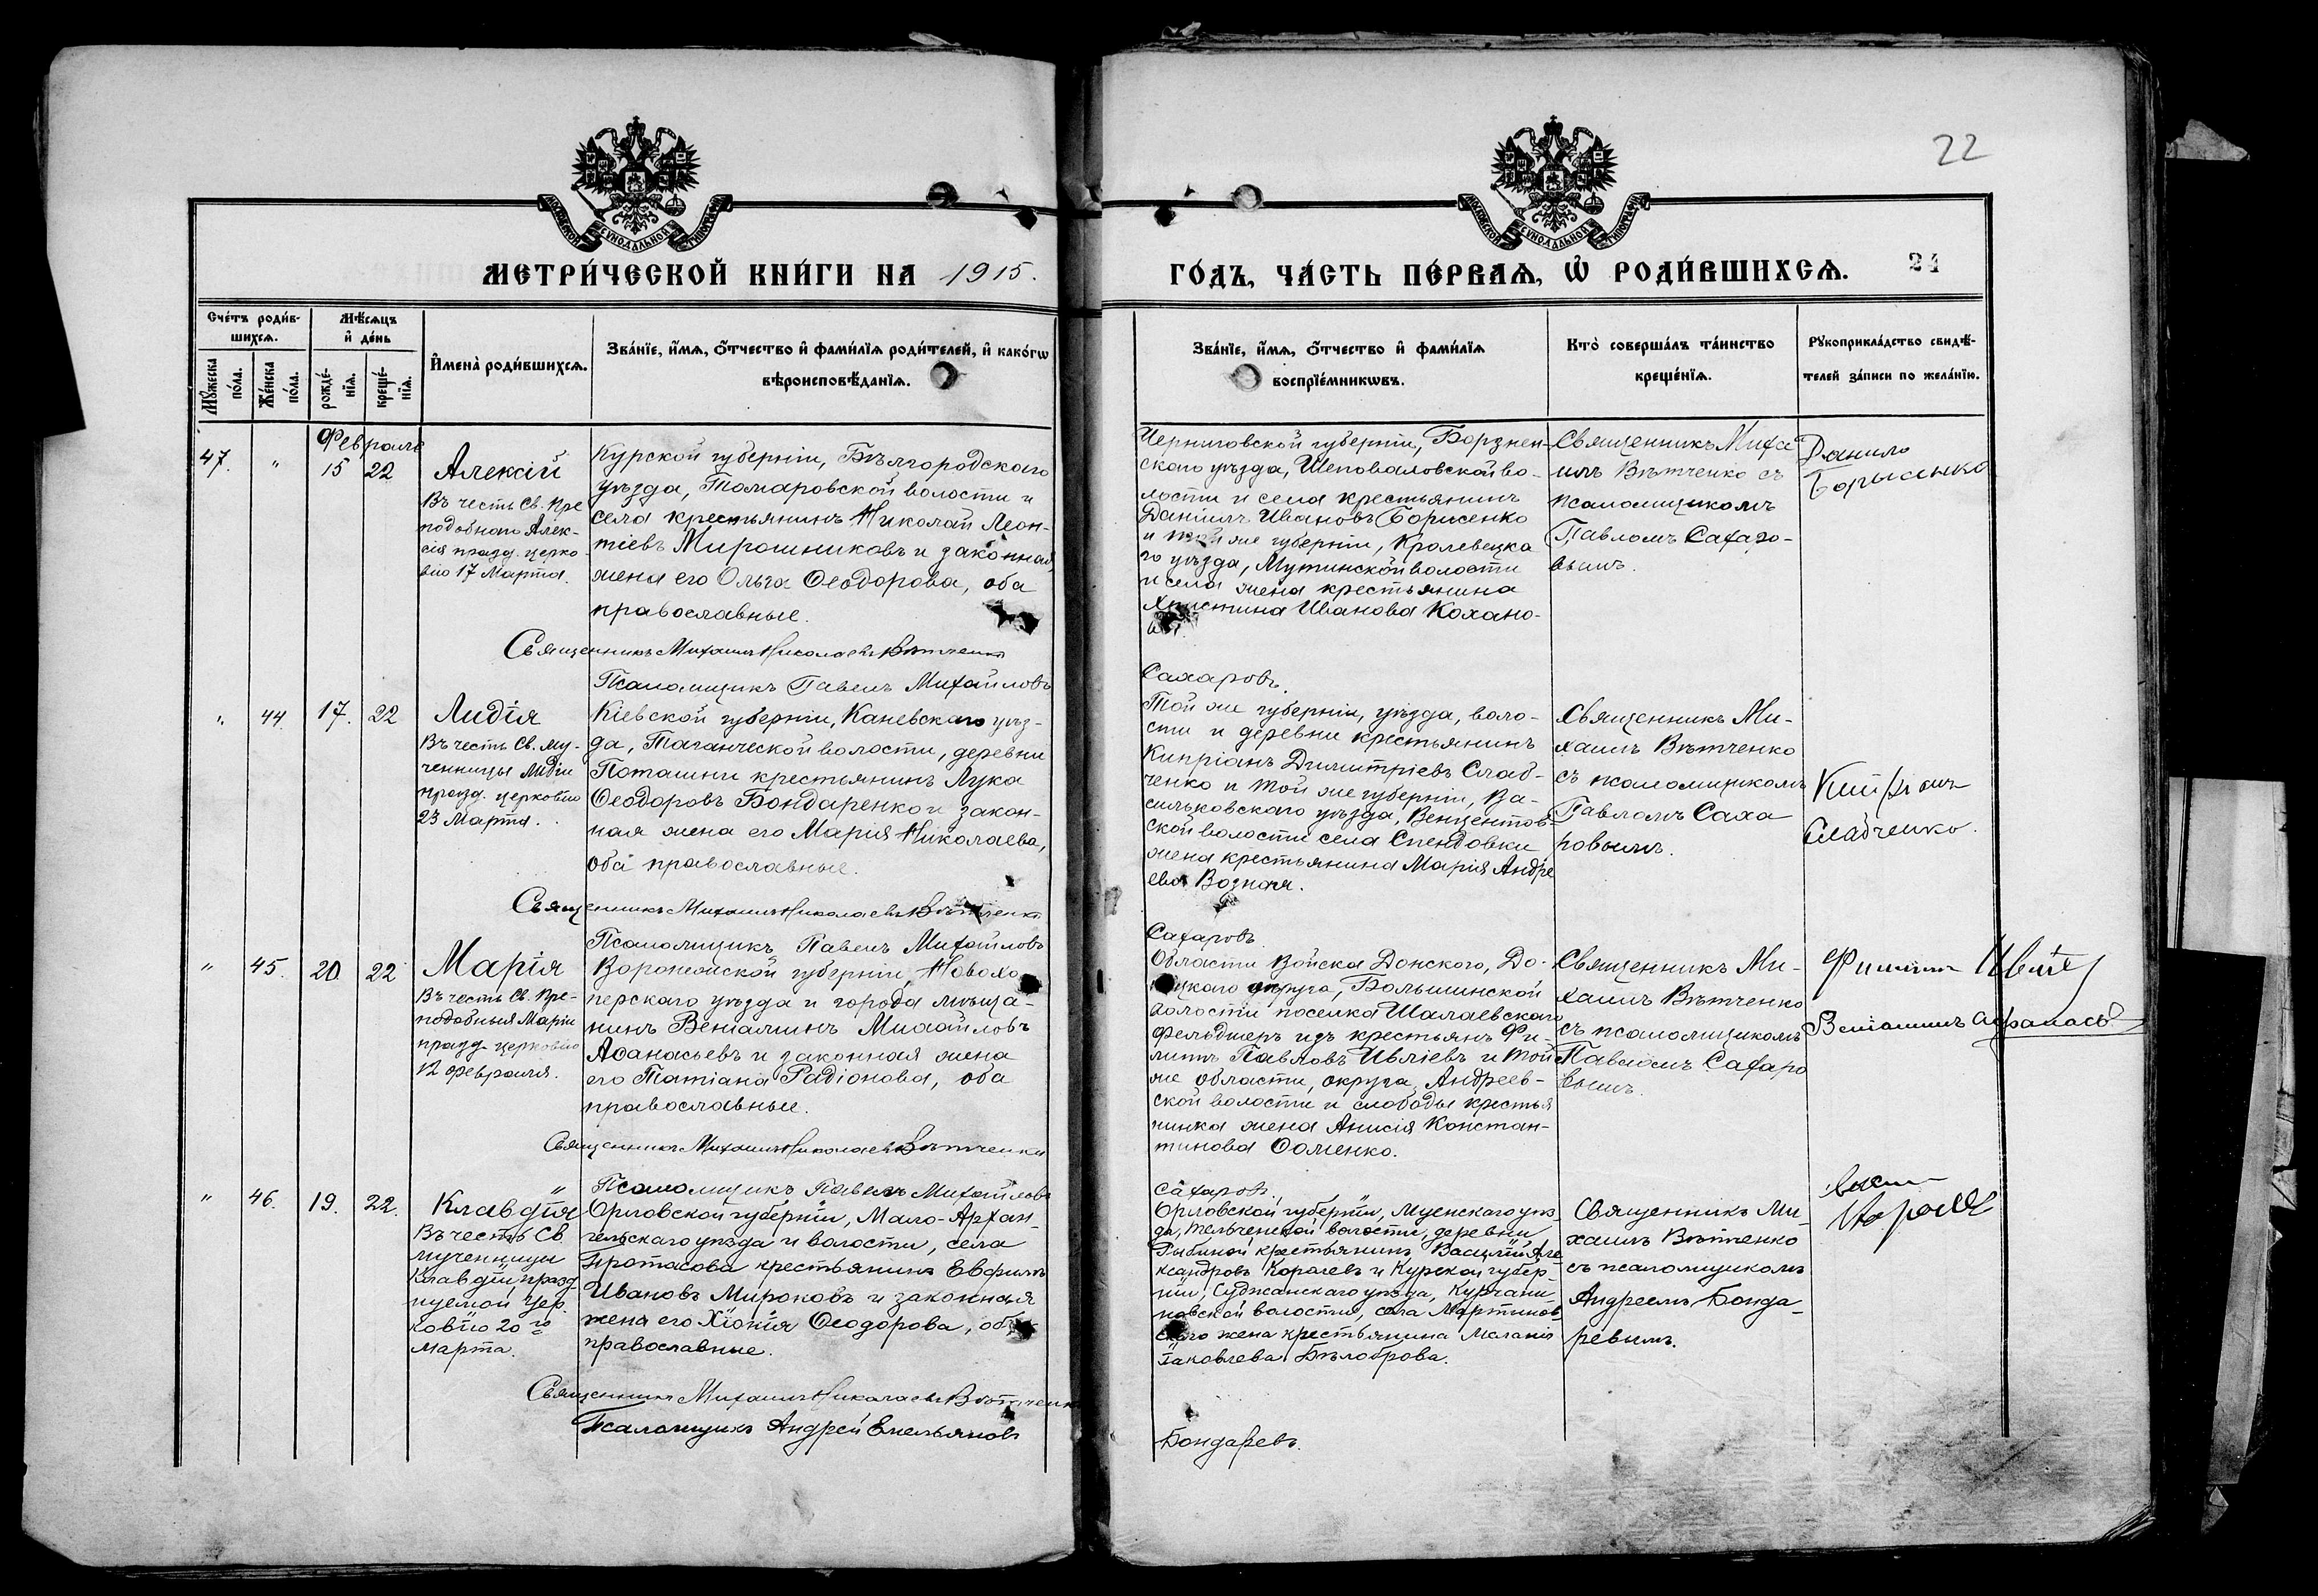 22
МОСКОВСКОЙ СѴНОДАЛЬНОЙ ТИПОГРАФІИ
МОСКОВСКОЙ СѴНОДАЛЬНОЙ ТИПОГРАФІИ
МЕТРИ́ЧЕСКОЙ КНИ́ГИ НА 1915.
ГО́ДЪ, ЧА́СТЬ ПЕ́РВАѦ, Ѽ РОДИ́ВШИХСѦ.
24
Сче́тъ роди́в-
шихсѧ.
Мꙋ́жеска по́ла.
Же́нска по́ла.
Мѣ́сѧцъ
и҆ де́нь
рожде́-
нїѧ.
креще́-
нїѧ.
И҆мена̀ роди́вшихсѧ.
Зва́нїе, и҆́мѧ, ѻ҆́тчество и҆ фами́лїѧ роди́телей, и҆ како́гѡ
вѣроисповѣ́данїѧ.
Зва́нїе, и҆́мѧ, ѻ҆́тчество и҆ фами́лїѧ
воспрїе́мникѡвъ.
Кто̀ соверша́лъ та́инство
креще́нїѧ.
Рꙋкоприкла́дство свидѣ́-
телей за́писи по жела́нїю.
Февраль
47.
"
15
22
Алексій
Въ честь Св. Пре
подобнаго Алек-
сія празд. церко-
вію 17 Марта.
Курской губерніи, Бѣлгородскаго
уѣзда, Томаровской волости и
села крестьянинъ Николай Леон-
тіевъ Мирошниковъ и законная
жена его Ольга Ѳеодорова, оба
православные.
Священникъ Михаилъ Николаевъ Вѣтченко
Псаломщикъ Павелъ Михайловъ
Черниговской губерніи, Борзнен-
скаго уѣзда, Шаповаловской во-
лости и села крестьянинъ
Даніилъ Ивановъ Борисенко
и той же губерніи, Кролевецка
го уѣзда, Мутинской волости
и села жена крестьянина
Христина Иванова Кохано-
ва.
Сахаровъ.
Священникъ Миха
илъ Вѣтченко съ
псаломщикомъ
Павломъ Сахаро-
вымъ.
Данило
Борысенко
"
44
17.
22
Лидія
Въ честь Св. му-
ченницы Лидіи
празд. церковію
23 Марта.
Кіевской губерніи, Каневскаго уѣз-
да, Таганческой волости, деревни
Поташни крестьянинъ Лука
Ѳеодоровъ Бондаренко и закон-
ная жена его Марія Николаева,
оба православные.
Священникъ Михаилъ Николаевъ Вѣтченко
Псаломщикъ Павелъ Михайловъ
Той же губерніи, уѣзда, воло-
сти и деревни крестьянинъ
Кипріанъ Димитріевъ Слаб-
ченко и той же губерніи, Ва-
сильковскаго уѣзда, Венцентов-
ской волости села Спендовки
жена крестьянина Марія Андре
ева Возная.
Сахаровъ
Священникъ Ми-
хаилъ Вѣтченко
съ псаломщикомъ
Павломъ Саха
ровымъ.
Кипріянъ
Слабченко.
"
45.
20
22
Марія
Въ честь Св. Пре-
подобныя Маріи
празд. церковію
12 февраля.
Воронежской губерніи, Новохо
перскаго уѣзда и города мѣща-
нинъ Веніаминъ Михайловъ
Аѳанасьевъ и законная жена
его Татіана Радіонова, оба
православные.
Священникъ Михаилъ Николаевъ Вѣтченко
Псаломщикъ Павелъ Михайловъ
Области Войска Донского, До-
нецкаго округа, Большинской
волости поселка Шалаевскаго
фельдшеръ изъ крестьянъ Фи-
липъ Павловъ Ивліевъ и той
же области, округа, Андреев-
ской волости и слободы крестья
нинка жена Анисія Констан-
тинова Ѳоменко.
Сахаровъ.
Священникъ Ми-
хаилъ Вѣтченко
съ псаломщикомъ
Павломъ Сахаро
вымъ.
Веніаминъ Афанасьев
"
46.
19.
22.
Клавдія
Въ честь Св
мученицы
Клавдіи празд
нуемой цер.
ковію 20го
марта.
Орловской губерніи, Мало-Архан-
гельскаго уѣзда и волости, села
Протасова крестьянинъ Евфимъ
Ивановъ Мироковъ и законная
жена его Хіонія Ѳеодорова, оба
православные.
Священникъ Михаилъ Николаевъ Вѣтченко
Псаломщикъ Андрей Емельяновъ
Орловской губерніи, Мценскаго уѣз-
да, Тельченской волости, деревни
Рыбиной крестьянинъ Василій Але
ксандровъ Королевъ и Курской губер-
ніи, Суджанскаго уѣзда, Курчани-
новской волости, села Мартинов-
скаго жена крестьянина Маланія
Іаковлева Бѣлоброва.
Бондаревъ.
Священникъ Ми-
хаилъ Вѣтченко
съ псаломщикомъ
Андреемъ Бонда-
ревымъ.